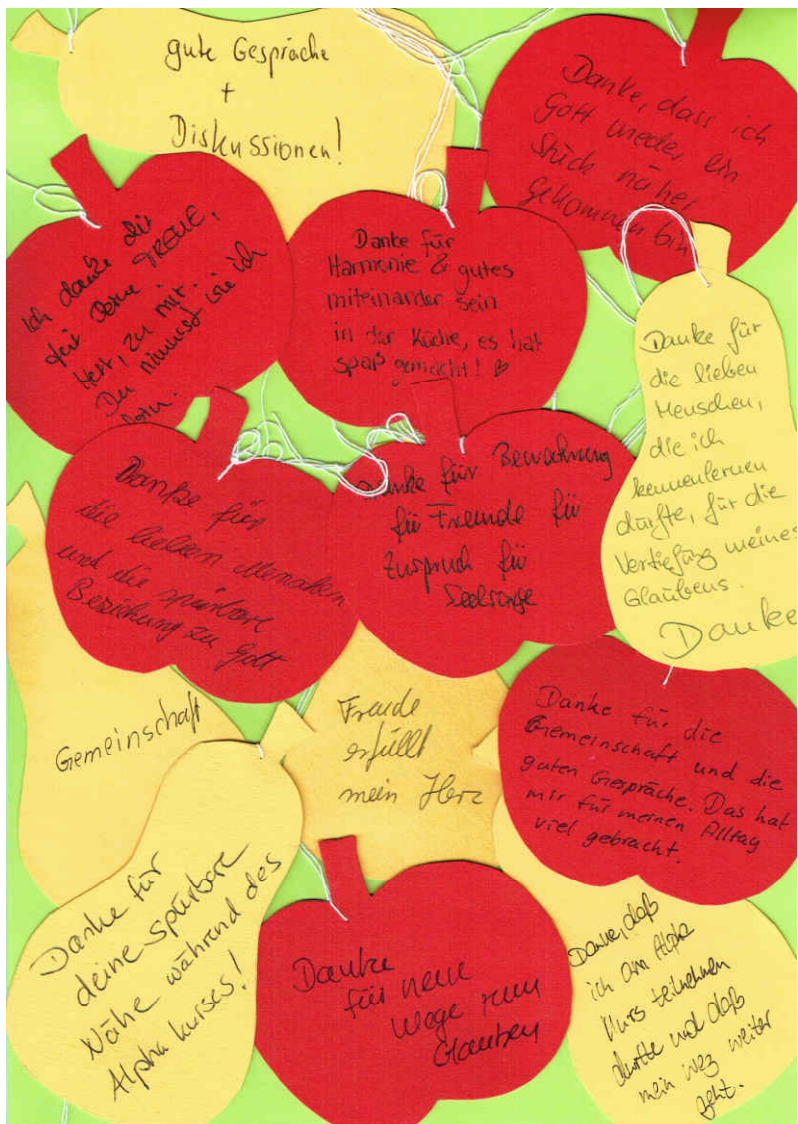 gute Gespräche
+
Diskussionen!
Danke, dass ich
Gott wieder ein
Stück näher
gekommen bin
Ich danke dir
für Deine TREUE,
Herr, zu mir.
Du nimmst wie ich
bin.
Danke für
Harmonie & gutes
miteinander sein
in der Küche, es hat
spaß gemacht!
Danke für
die lieben
Menschen,
die ich
kennenlernen
durfte, für die
Vertiefung meines
Glaubens.
Danke
Danke für
die lieben Menschen
und die spürbare
Beziehung zu Gott
Danke für Bewahrung
für Freunde für
Zuspruch für
Seelsorge
Gemeinschaft
Freude
erfüllt
mein Herz
Danke für die
Gemeinschaft und die
guten Gespräche. Das hat
mir für meinen Alltag
viel gebracht.
Danke für
deine spürbare
Nähe während des
Alpha kurses!
Danke
für neue
Wege zum
Glauben
Danke, daß
ich am Alpha
Kurs teilnehmen
durfte und daß
mein weg weiter
geht.